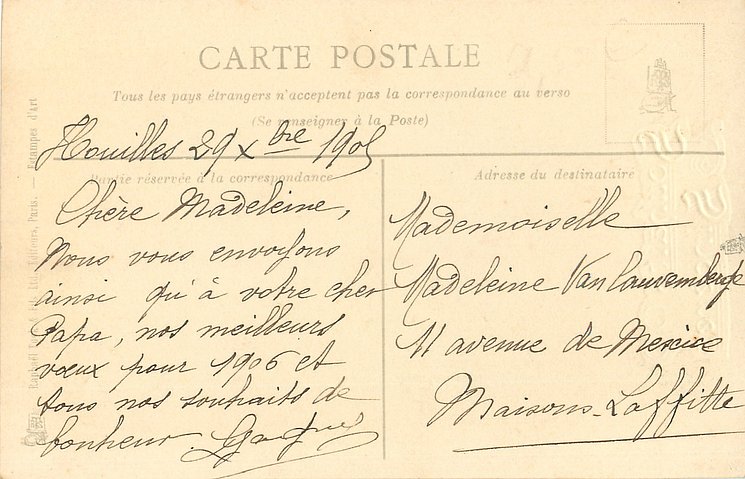 CARTE POSTALE
Tous les pays étrangers n'acceptent pas la correspondance au verso
(Se renseigner à la Poste)
Houilles 29 Xbre 1905
Partie réservée à la correspondance
Chère Madeleine,
Nous vous envoyons
ainsi qu'à votre cher
Papa, nos meilleurs
vœux pour 1906 et
tous nos souhaits de
bonheur.
Adresse du destinataire
Mademoiselle
Madeleine Van Cauwemberge
11 avenue de Mexico
Maisons-Laffitte
Raphaël Éditeurs, Paris. — Estampes d'Art